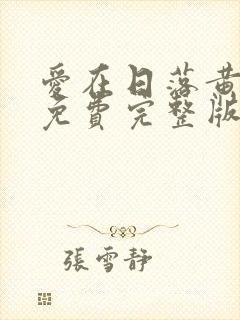 愛在日落黃
免費完整版
張雪靜